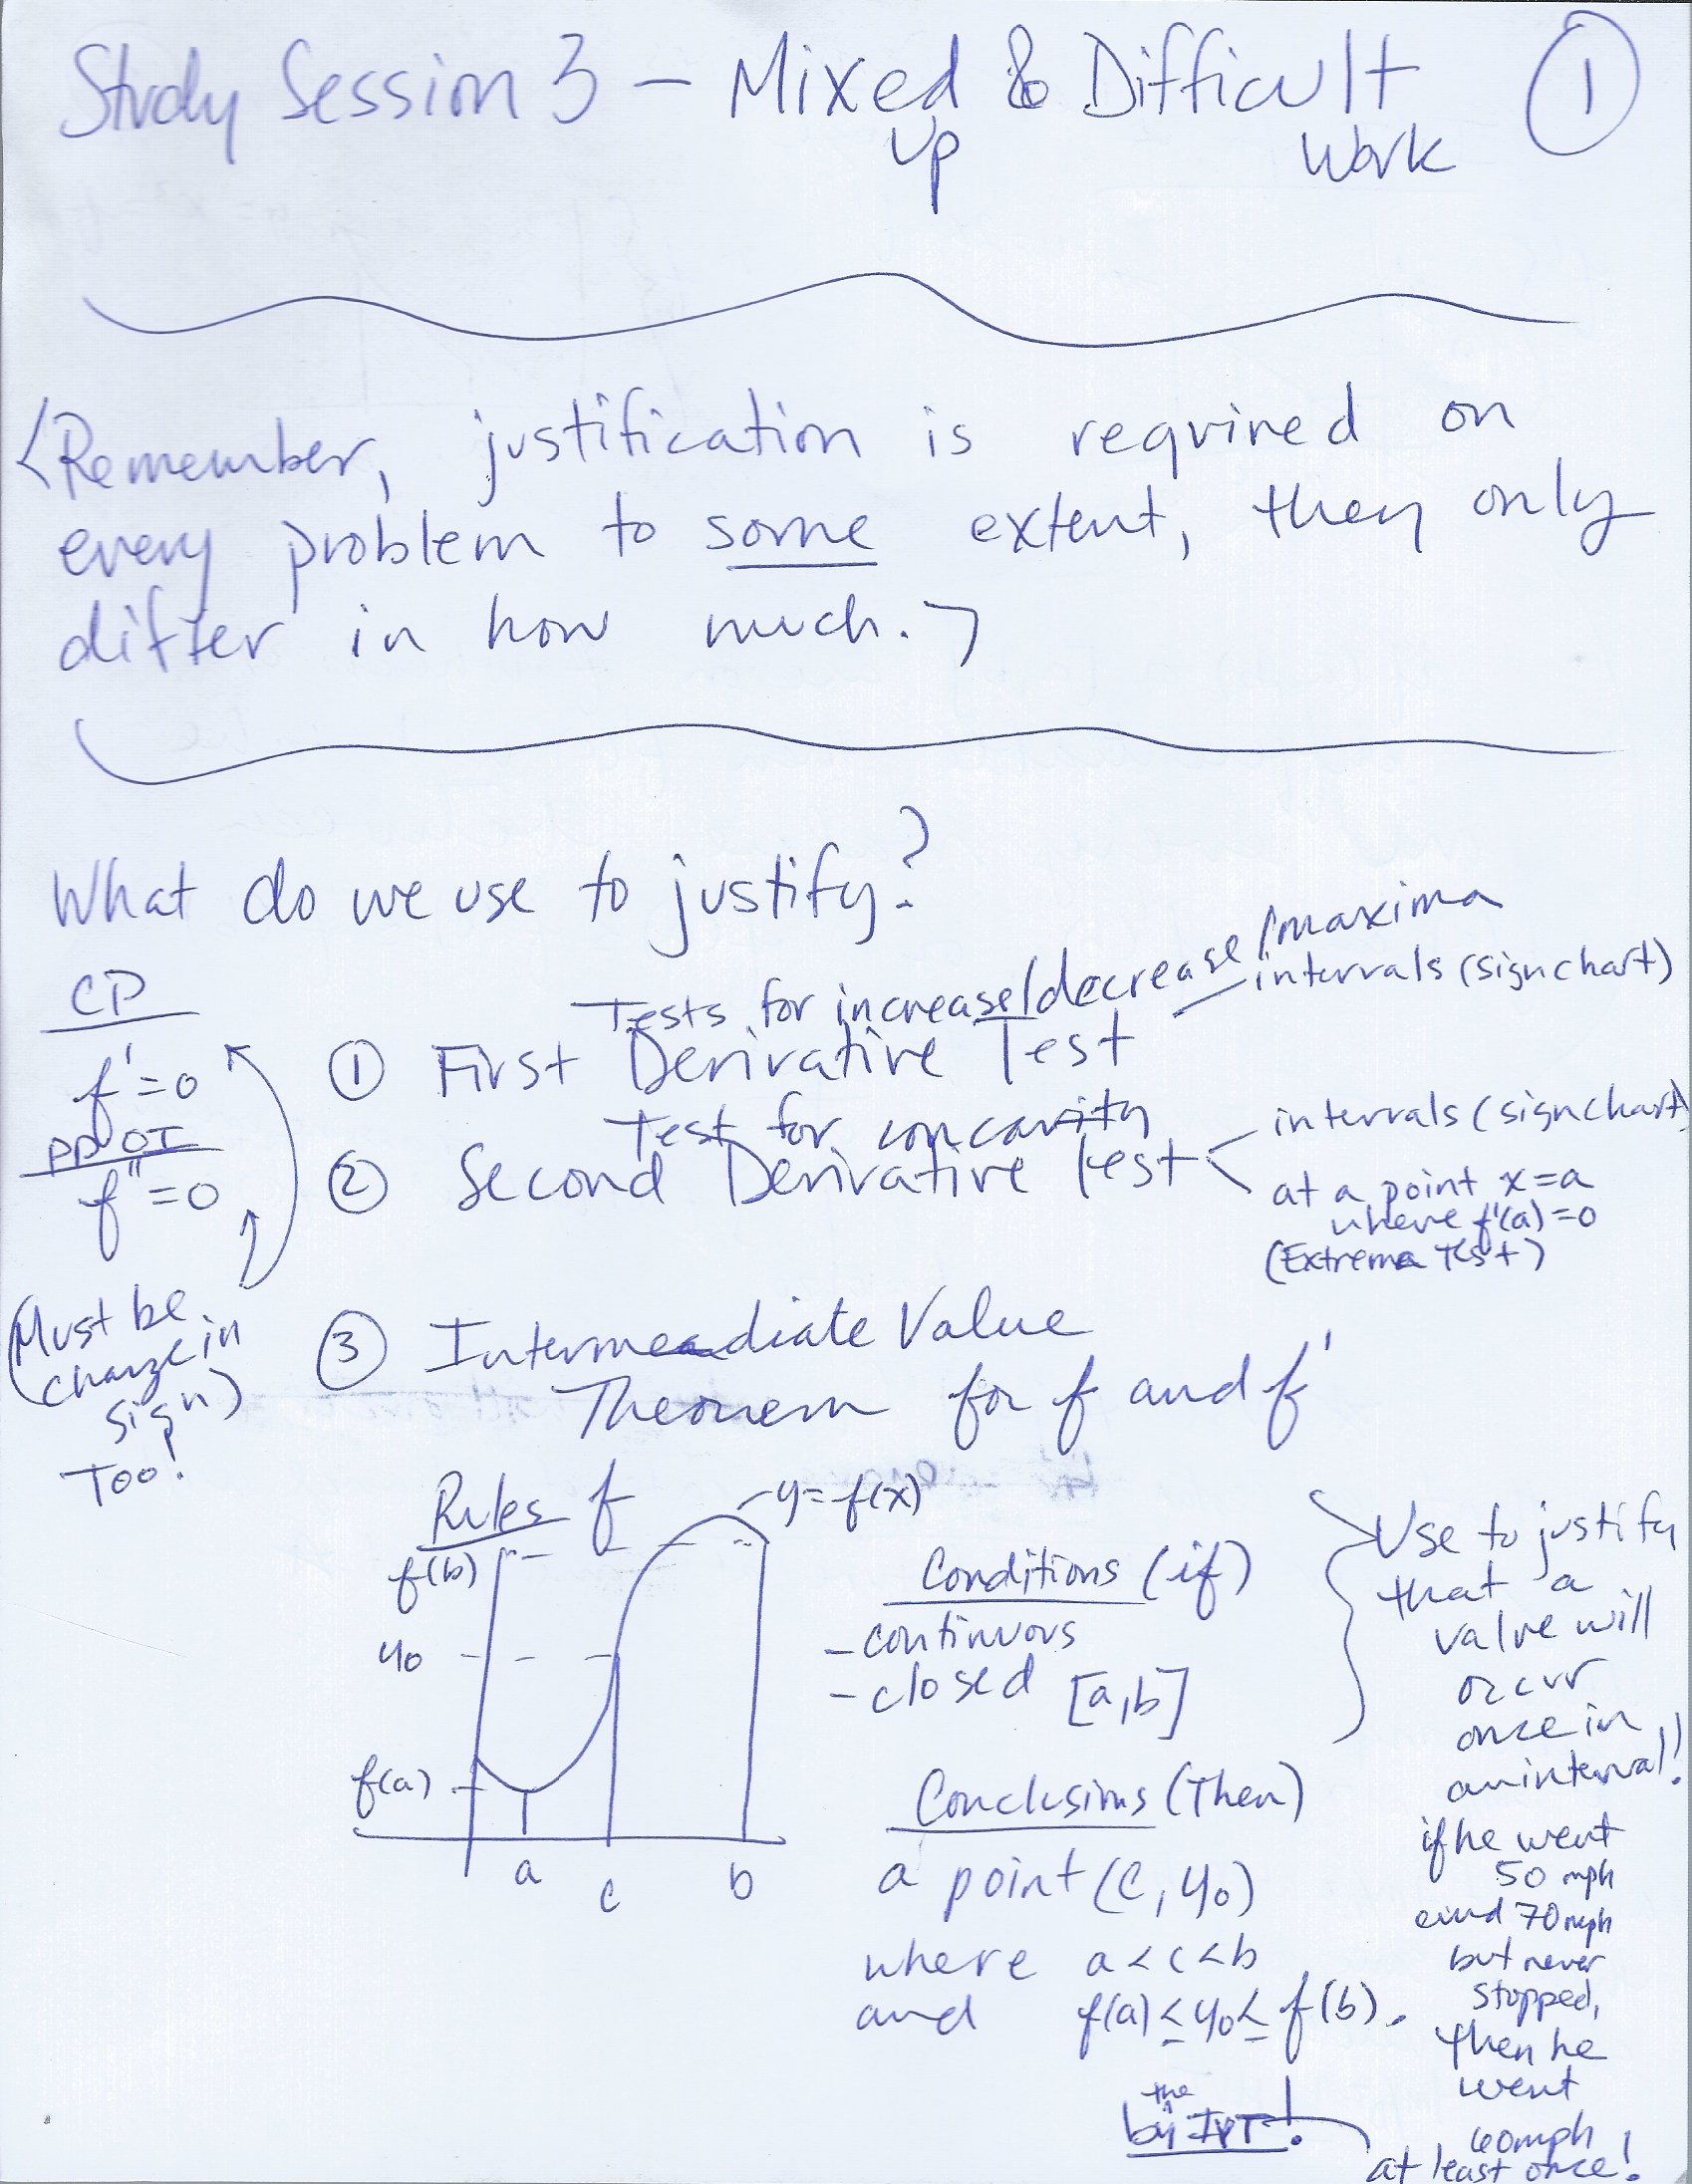 Study Session 3 – Mixed & Difficult ①
Up Work
<Remember, justification is required on
every problem to some extent, they only
differ in how much.>
What do we use to justify?
CP
f'=0
PPOI
f''=0
(Must be
change in
sign)
Too!
Tests for increase/decrease/maxima
① First Derivative Test
intervals (signchart)
Test for concavity
② Second Derivative Test
intervals (signchart)
at a point x=a
where f'(a)=0
(Extrema Test)
③ Intermediate Value
Theorem for f and f'
Rules f
y=f(x)
f(b)
y₀
f(a)
a
c
b
Conditions (if)
- continuous
- closed [a,b]
Conclusions (Then)
a point (c, y₀)
where a<c<b
and f(a)≤y₀≤f(b).
by the IVT!
Use to justify
that a
value will
occur
once in
an interval!
if he went
50 mph
and 70mph
but never
stopped,
then he
went
60mph
at least once!